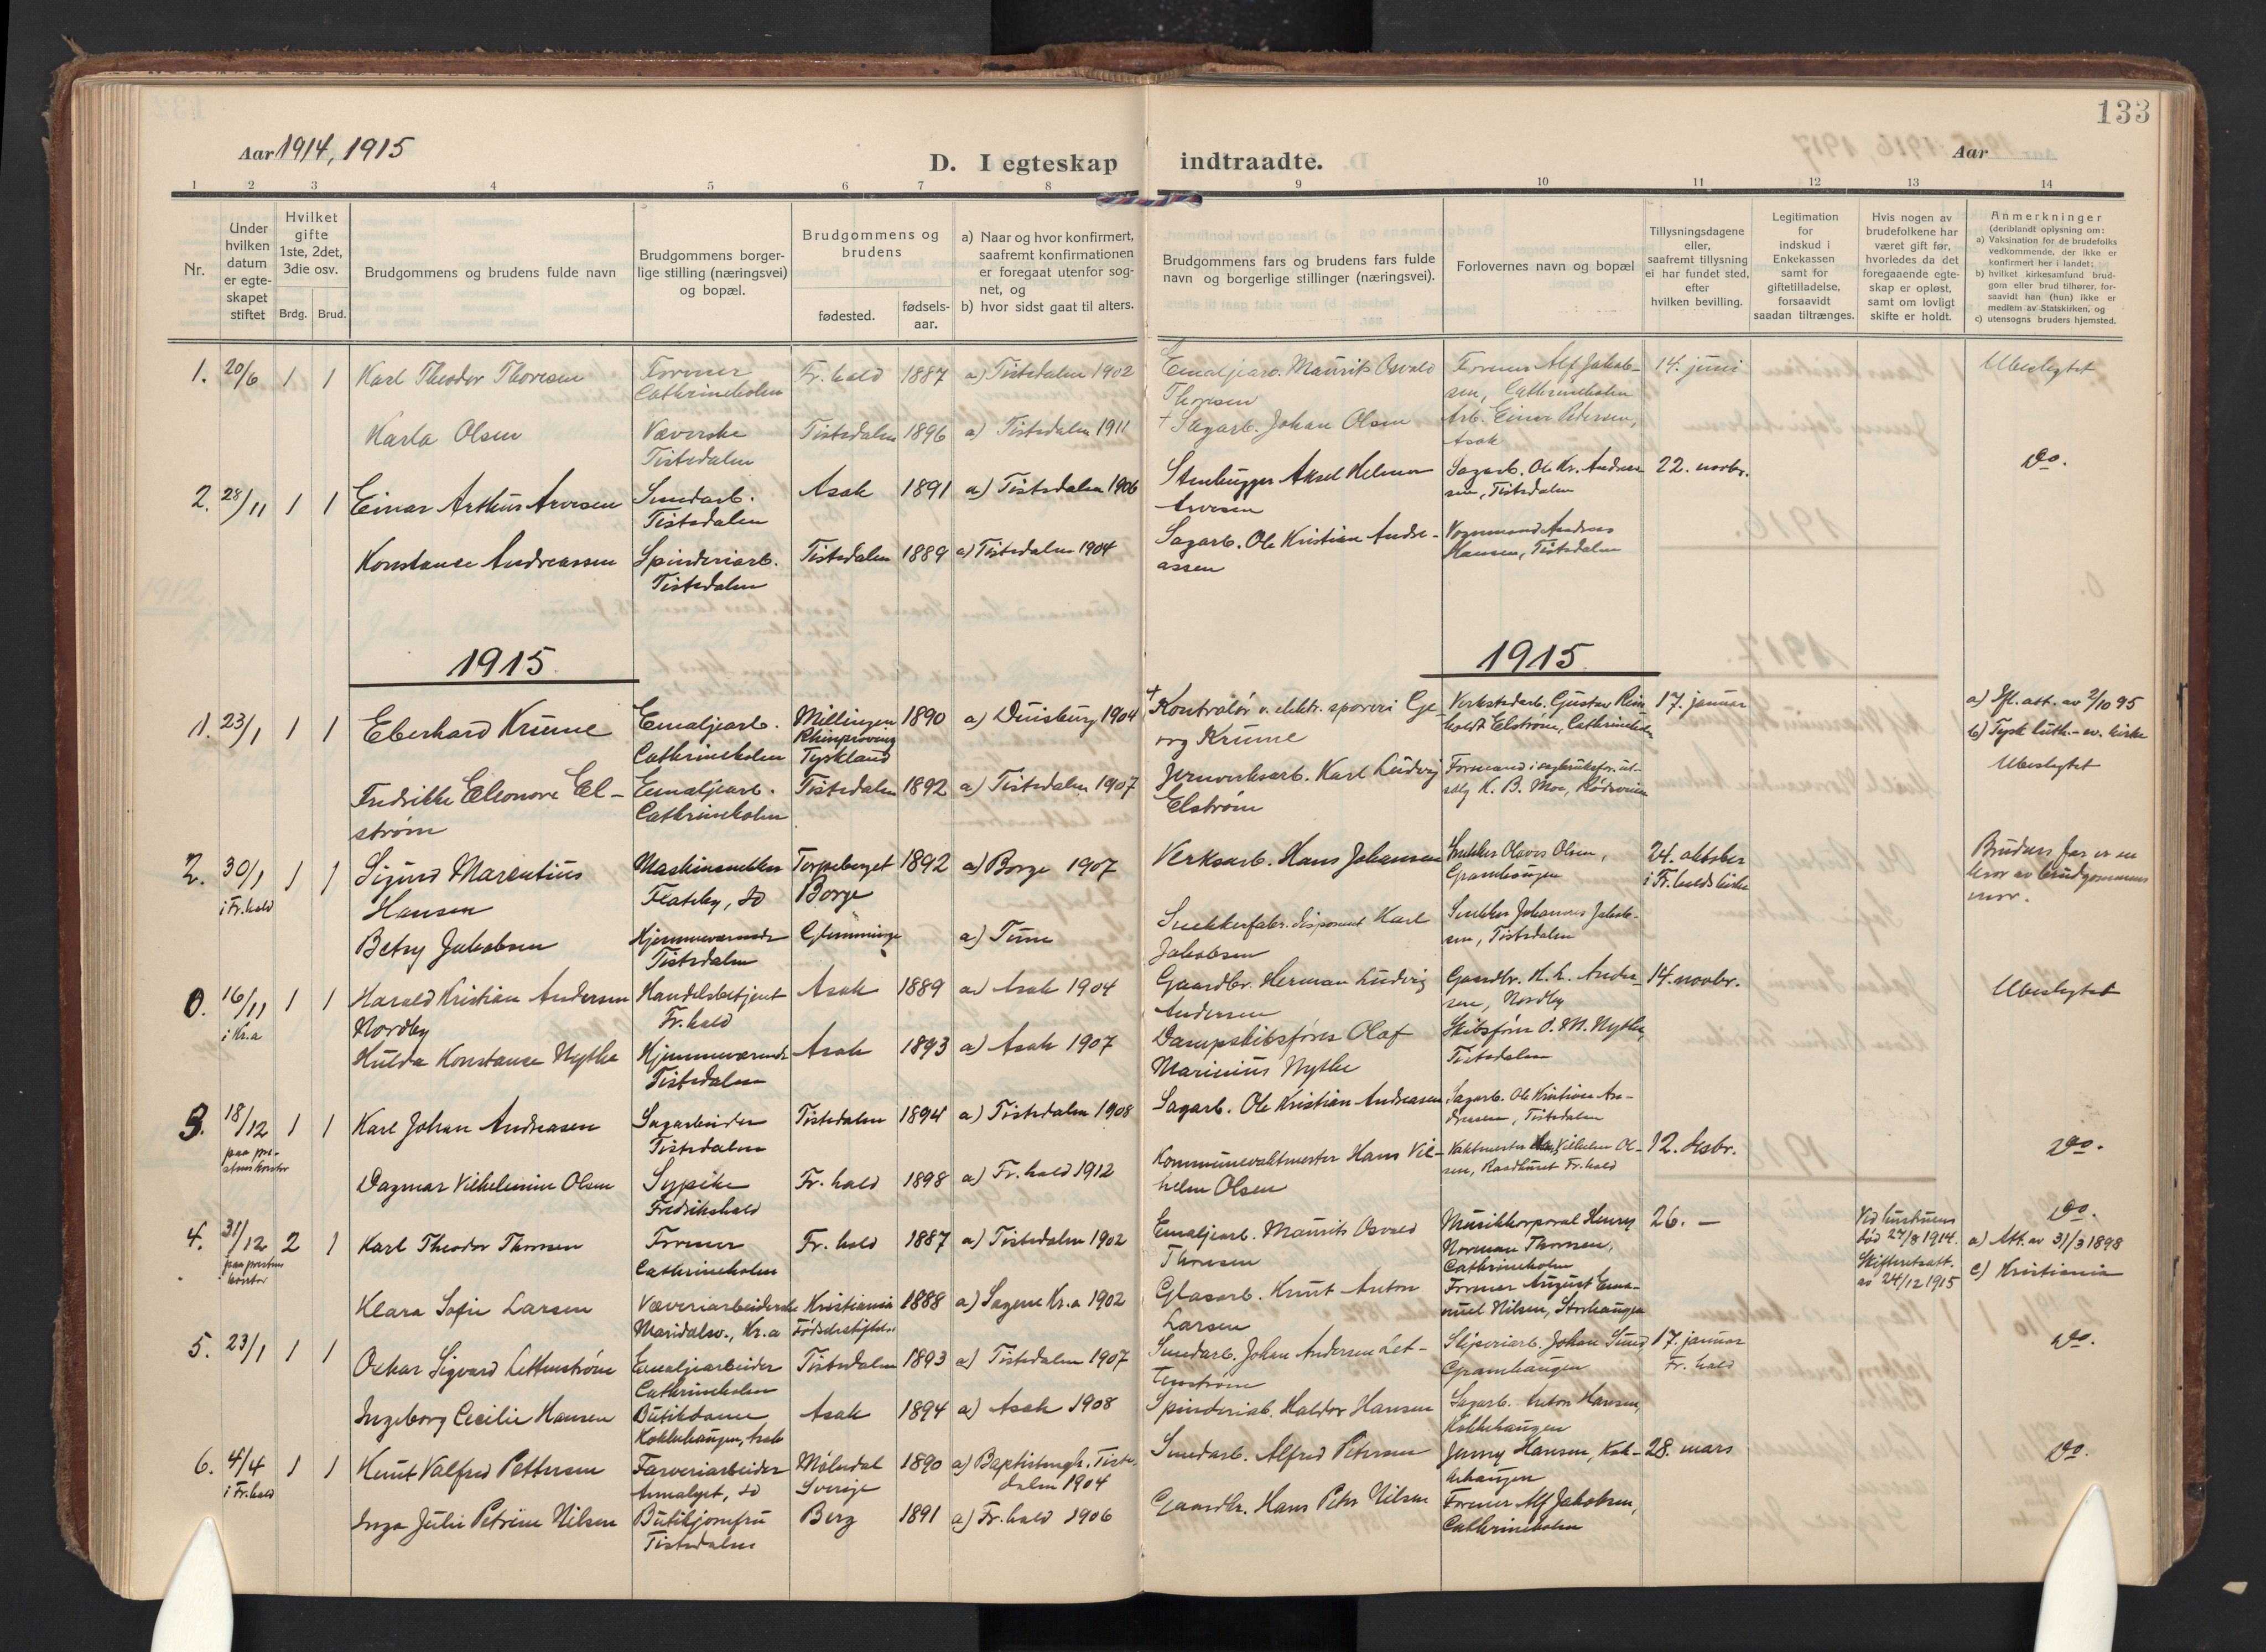 133
Aar 1914, 1915
D. I egteskap indtraadte.
Aar
1 2 3 4 5 6 7 8 9 10 11 12 13 14
Nr.
Under hvilken datum er egteskapet stiftet
Hvilket gifte 1ste, 2det, 3die osv.
Brdg. Brud.
Brudgommens og brudens fulde navn
Brudgommens borgerlige stilling (næringsvei) og bopæl.
Brudgommens og brudens
fødested.
fødselsaar.
a) Naar og hvor konfirmert, saafremt konfirmationen er foregaat utenfor sognet, og
b) hvor sidst gaat til alters.
Brudgommens fars og brudens fars fulde navn og borgerlige stillinger (næringsvei).
Forlovernes navn og bopæl
Tillysningsdagene eller, saafremt tillysning ei har fundet sted, efter hvilken bevilling.
Legitimation for indskud i Enkekassen samt for giftetilladelse, forsaavidt saadan tiltrænges.
Hvis nogen av brudefolkene har været gift før, hvorledes da det foregaaende egteskap er opløst, samt om lovligt skifte er holdt.
Anmerkninger (deriblandt oplysning om:
a) Vaksination for de brudefolks vedkommende, der ikke er konfirmert her i landet;
b) hvilket kirkesamfund brudgom eller brud tilhører, forsaavidt han (hun) ikke er medlem av Statskirken, og
c) utensogns bruders hjemsted.
1. 20/6 1 1 Karl Theodor Thoresen Former Cathrineholm Fr.hald 1887 a) Tistedalen 1902 Emaljearb. Maurits Osvald Thoresen Former Alf Jakobsen, Cathrineholm 14. juni Ubeslegtet
Karla Olsen Væverske Tistedalen Tistedalen 1896 a) Tistedalen 1911 + Sagarb. Johan Olsen Arb. Einar Pedersen, Asak
2. 28/11 1 1 Einar Arthur Arvesen Smedarb. Tistedalen Asak 1891 a) Tistedalen 1906 Stenhugger Aksel Helmer Arvesen Sagarb. Ole Kr. Andreassen, Tistedalen 22. novbr. do.
Konstanse Andreassen Spinderiarb. Tistedalen Tistedalen 1889 a) Tistedalen 1904 Sagarb. Ole Kristian Andreassen Vognmand Andreas Hansen, Tistedalen
1915. 1915.
1. 23/1 1 1 Eberhard Krüme Emaljearb. Cathrineholm Millingen Rhinprovins Tyskland 1890 a) Duisburg 1904 + Kontrolør v. elektr. sporvei Georg Krüme Verkstedarb. Gustav Reinholdt Elstrøm, Cathrineholm 17. januar a) Ifl. att. av 2/10 95 b) Tysk luth.-ev. kirke Ubeslegtet
Fredrikke Eleonore Elstrøm Emaljearb. Cathrineholm Tistedalen 1892 a) Tistedalen 1907 Jernverksarb. Karl Ludvig Elstrøm Formand i sagbruksfor. utsalg K. B. Moe, Rødsveien
2. 30/1 i Fr.hald 1 1 Sigurd Marentius Hansen Maskinsnekker Flateby, do Torpeberget Borge 1892 a) Borge 1907 Verksarb. Hans Johansen Snekker Olaves Olsen, Gramhaugen 24. oktober i Fr.halds kirke Brudens far er en bror av brudgommens mor.
Betsy Jakobsen Hjemmeværende Tistedalen Glemminge a) Tune Snekkerfabr. disponent Karl Jakobsen Snekker Johannes Jakobsen, Tistedalen
0. 16/11 i Kr.a 1 1 Harald Kristian Andersen Nordby Handelsbetjent Fr.hald Asak 1889 a) Asak 1904 Gaardbr. Herman Ludvig Andersen Gaardbr. H. L. Andersen, Nordby 14. novbr. Ubeslegtet
Hulda Konstanse Nythe Hjemmeværende Tistedalen Asak 1893 a) Asak 1907 Dampskibsfører Olaf Marinius Nythe Skibsfører O. M. Nythe, Tistedalen
3. 18/12 paa prestens kontor 1 1 Karl Johan Andreasen Sagarbeider Tistedalen Tistedalen 1894 a) Tistedalen 1908 Sagarb. Ole Kristian Andreasen Sagarb. Ole Kristian Andreasen, Tistedalen 12. desbr. do.
Dagmar Vilhelmine Olsen Sypike Fredrikshald Fr.hald 1898 a) Fr.hald 1912 Kommunevaktmester Hans Vilhelm Olsen Vaktmester Hans Vilhelm Olsen, Raadhuset Fr.hald
4. 31/12 paa prestens kontor 2 1 Karl Theodor Thoresen Former Cathrineholm Fr.hald 1887 a) Tistedalen 1902 Emaljearb. Maurits Osvald Thoresen Musikkorporal Henry Norman Thoresen, Cathrineholm 26. — Ved hustruens død 27/8 1914. Skifteretsatt. av 24/12 1915 do. a) Att. av 31/3 1898 c) Kristiania
Klara Sofie Larsen Væveriarbeiderske Maridalsv., Kr.a Kristiania Fødselsstiftelse 1888 a) Sagene Kr.a 1902 Glasarb. Knut Anton Larsen Former August Emanuel Nilsen, Storhaugen
5. 23/1 1 1 Oskar Sigvard Lettenstrøm Emaljearbeider Cathrineholm Tistedalen 1893 a) Tistedalen 1907 Smedarb. Johan Andersen Lettenstrøm Sliperiarb. Johan Sund Gramhaugen 17. januar Fr.hald do.
Ingeborg Cecilie Hansen Butikdame Kokkehaugen, Asak Asak 1894 a) Asak 1908 Spinderiarb. Haldor Hansen Sagarb. Anton Hansen, Kokkehaugen
6. 4/4 i Fr.hald 1 1 Knut Valfred Pettersen Farveriarbeider do Mølndal Sverige 1890 a) Baptistmgh. Tistedalen 1904 Smedarb. Alfred Petersen Jenny Hansen, Kokkehaugen 28. mars do.
Inga Julie Petrine Nilsen Butikjomfru Tistedalen Berg 1891 a) Fr.hald 1906 Gaardbr. Hans Peter Nilsen Former Alf Jakobsen, Cathrineholm